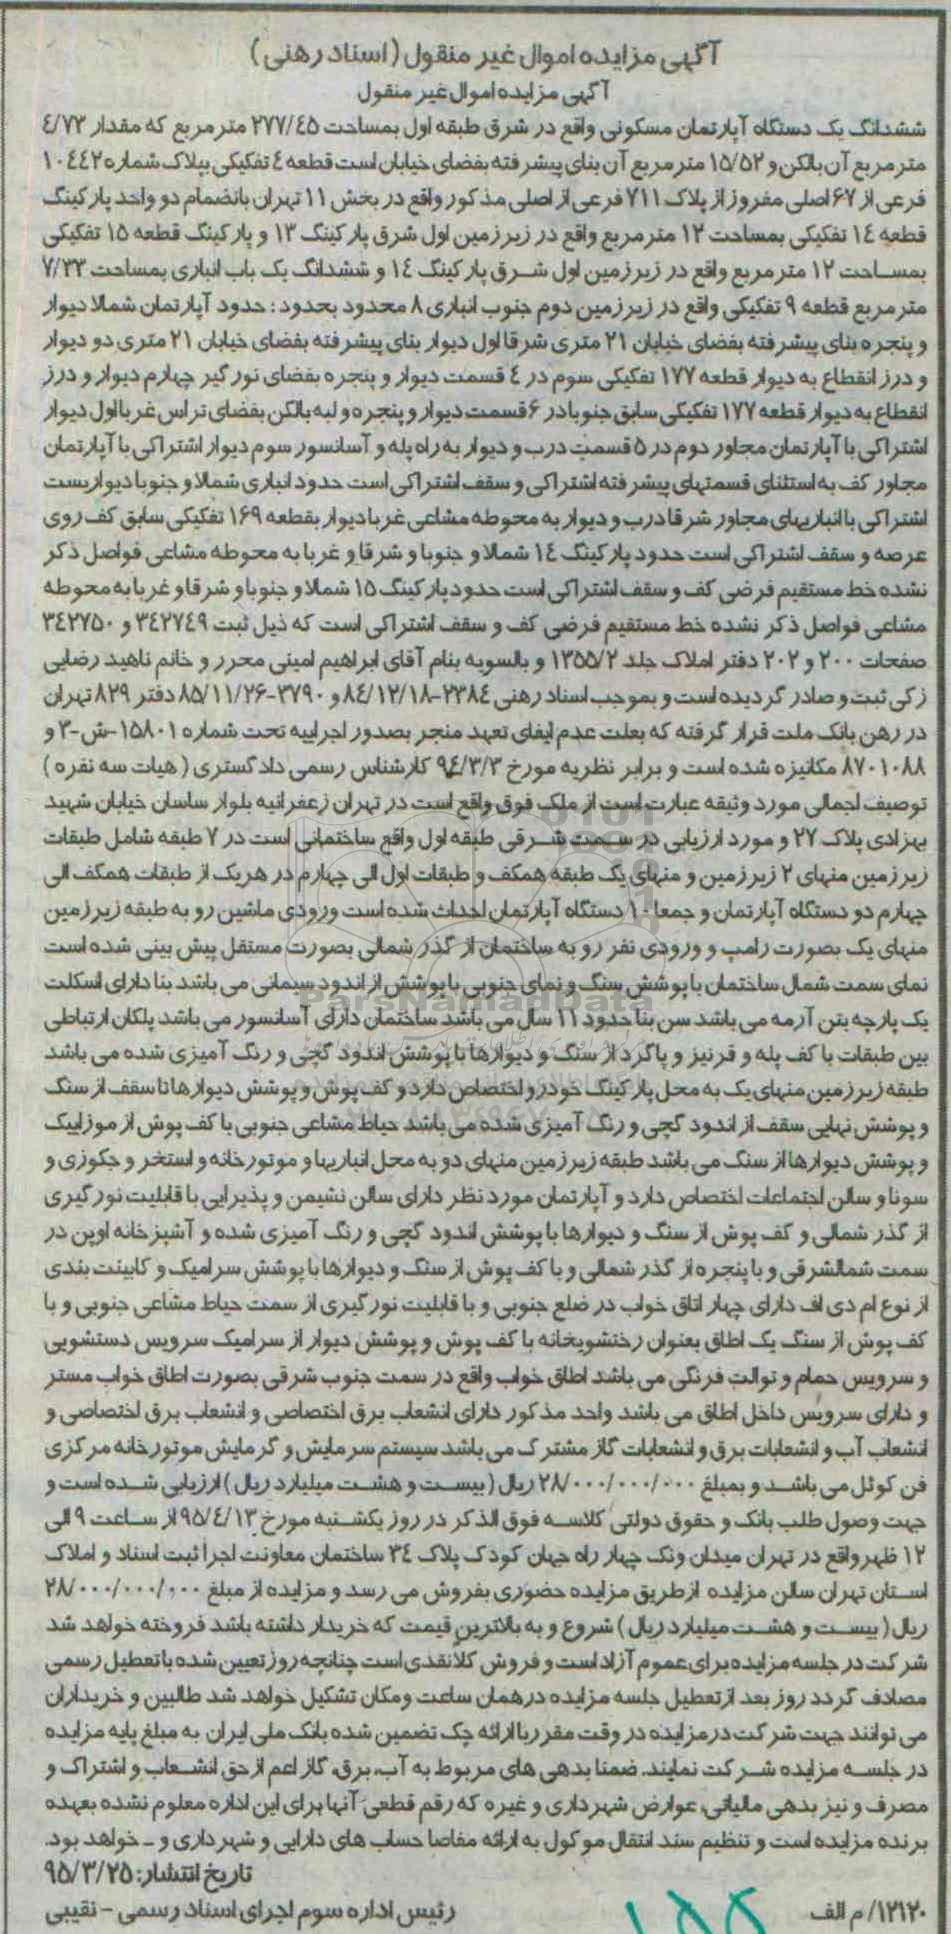 آگهی مزایده اموال غیر منقول (اسناد رهنی)
آگهی مزایده اموال غیر منقول
ششدانگ یک دستگاه آپارتمان مسکونی واقع در شرق طبقه اول بمساحت ۲۷۷/۴۵ متر مربع که مقدار ۴/۷۳
متر مربع آن بالکن و ۱۵/۵۲ متر مربع آن بنای پیشرفته بفضای خیابان است قطعه ۴ تفکیکی بپلاک شماره ۱۰۴۴۲
فرعی از ۶۷ اصلی مفروز از پلاک ۷۱۱ فرعی از اصلی مذکور واقع در بخش ۱۱ تهران بانضمام دو واحد پارکینگ
قطعه ۱۴ تفکیکی بمساحت ۱۲ متر مربع واقع در زیرزمین اول شرق پارکینگ ۱۳ و پارکینگ قطعه ۱۵ تفکیکی
بمساحت ۱۲ متر مربع واقع در زیرزمین اول شرق پارکینگ ۱۴ و ششدانگ یک باب انباری بمساحت ۷/۳۳
متر مربع قطعه ۹ تفکیکی واقع در زیرزمین دوم جنوب انباری ۸ محدود بحدود : حدود آپارتمان شمالا دیوار
و پنجره بنای پیشرفته بفضای خیابان ۲۱ متری شرقا اول دیوار بنای پیشرفته بفضای خیابان ۲۱ متری دو دیوار
و درز انقطاع به دیوار قطعه ۱۷۷ تفکیکی سوم در ۴ قسمت دیوار و پنجره بفضای نورگیر چهارم دیوار و درز
انقطاع به دیوار قطعه ۱۷۷ تفکیکی سابق جنوبا در ۶ قسمت دیوار و پنجره و لبه بالکن بفضای تراس غربا اول دیوار
اشتراکی با آپارتمان مجاور دوم در ۵ قسمت درب و دیوار به راه پله و آسانسور سوم دیوار اشتراکی با آپارتمان
مجاور کف به استثنای قسمتهای پیشرفته اشتراکی و سقف اشتراکی است حدود انباری شمالا و جنوبا دیواریست
اشتراکی با انباریهای مجاور شرقا درب و دیوار به محوطه مشاعی غربا دیوار بقطعه ۱۶۹ تفکیکی سابق کف روی
عرصه و سقف اشتراکی است حدود پارکینگ ۱۴ شمالا و جنوبا و شرقا و غربا به محوطه مشاعی فواصل ذکر
نشده خط مستقیم فرضی کف و سقف اشتراکی است حدود پارکینگ ۱۵ شمالا و جنوبا و شرقا و غربا به محوطه
مشاعی فواصل ذکر نشده خط مستقیم فرضی کف و سقف اشتراکی است که ذیل ثبت ۳۴۲۷۴۹ و ۳۴۲۷۵۰
صفحات ۲۰۰ و ۲۰۲ دفتر املاک جلد ۱۳۵۵/۲ و بالسویه بنام آقای ابراهیم امینی محرر و خانم ناهید رضایی
زکی ثبت و صادر گردیده است و بموجب اسناد رهنی ۲۳۸۴-۸۴/۱۲/۱۸ و ۳۷۹۰-۸۵/۱۱/۲۶ دفتر ۸۲۹ تهران
در رهن بانک ملت قرار گرفته که بعلت عدم ایفای تعهد منجر بصدور اجراییه تحت شماره ۱۵۸۰۱-ش-۳ و
۸۷۰۱۰۸۸ مکانیزه شده است و برابر نظریه مورخ ۹۴/۳/۳ کارشناس رسمی دادگستری (هیات سه نفره)
توصیف اجمالی مورد وثیقه عبارت است از ملک فوق واقع است در تهران زعفرانیه بلوار ساسان خیابان شهید
بهزادی پلاک ۲۷ و مورد ارزیابی در سمت شرقی طبقه اول واقع ساختمانی است در ۷ طبقه شامل طبقات
زیرزمین منهای ۲ زیرزمین و منهای یک طبقه همکف و طبقات اول الی چهارم در هریک از طبقات همکف الی
چهارم دو دستگاه آپارتمان و جمعا ۱۰ دستگاه آپارتمان احداث شده است ورودی ماشین رو به طبقه زیرزمین
منهای یک بصورت رامپ و ورودی نفر رو به ساختمان از گذر شمالی بصورت مستقل پیش بینی شده است
نمای سمت شمال ساختمان با پوشش سنگ و نمای جنوبی با پوشش از اندود سیمانی می باشد بنا دارای اسکلت
یک پارچه بتن آرمه می باشد سن بنا حدود ۱۱ سال می باشد ساختمان دارای آسانسور می باشد پلکان ارتباطی
بین طبقات با کف پله و قرنیز و پاگرد از سنگ و دیوارها با پوشش اندود گچی و رنگ آمیزی شده می باشد
طبقه زیرزمین منهای یک به محل پارکینگ خودرو اختصاص دارد و کف پوش و پوشش دیوارها تا سقف از سنگ
و پوشش نهایی سقف از اندود گچی و رنگ آمیزی شده می باشد حیاط مشاعی جنوبی با کف پوش از موزاییک
و پوشش دیوارها از سنگ می باشد طبقه زیرزمین منهای دو به محل انباریها و موتورخانه و استخر و جکوزی و
سونا و سالن اجتماعات اختصاص دارد و آپارتمان مورد نظر دارای سالن نشیمن و پذیرایی با قابلیت نورگیری
از گذر شمالی و کف پوش از سنگ و دیوارها با پوشش اندود گچی و رنگ آمیزی شده و آشپزخانه اوپن در
سمت شمالشرقی و با پنجره از گذر شمالی و با کف پوش از سنگ و دیوارها با پوشش سرامیک و کابینت بندی
از نوع ام دی اف دارای چهار اتاق خواب در ضلع جنوبی و با قابلیت نورگیری از سمت حیاط مشاعی جنوبی و با
کف پوش از سنگ یک اطاق بعنوان رختشویخانه با کف پوش و پوشش دیوار از سرامیک سرویس دستشویی
و سرویس حمام و توالت فرنگی می باشد اطاق خواب واقع در سمت جنوب شرقی بصورت اطاق خواب مستر
و دارای سرویس داخل اطاق می باشد واحد مذکور دارای انشعاب برق اختصاصی و انشعاب برق اختصاصی و
انشعاب آب و انشعابات برق و انشعابات گاز مشترک می باشد سیستم سرمایش و گرمایش موتورخانه مرکزی
فن کوئل می باشد و بمبلغ ۲۸/۰۰۰/۰۰۰/۰۰۰ ریال (بیست و هشت میلیارد ریال) ارزیابی شده است و
جهت وصول طلب بانک و حقوق دولتی کلاسه فوق الذکر در روز یکشنبه مورخ ۹۵/۴/۱۳ از ساعت ۹ الی
۱۲ ظهر واقع در تهران میدان ونک چهار راه جهان کودک پلاک ۳۴ ساختمان معاونت اجرا ثبت اسناد و املاک
استان تهران سالن مزایده از طریق مزایده حضوری بفروش می رسد و مزایده از مبلغ ۲۸/۰۰۰/۰۰۰/۰۰۰
ریال (بیست و هشت میلیارد ریال) شروع و به بالاترین قیمت که خریدار داشته باشد فروخته خواهد شد
شرکت در جلسه مزایده برای عموم آزاد است و فروش کلا نقدی است چنانچه روز تعیین شده با تعطیل رسمی
مصادف گردد روز بعد از تعطیل جلسه مزایده در همان ساعت و مکان تشکیل خواهد شد طالبین و خریداران
می توانند جهت شرکت در مزایده در وقت مقرر با ارائه چک تضمین شده بانک ملی ایران به مبلغ پایه مزایده
در جلسه مزایده شرکت نمایند. ضمنا بدهی های مربوط به آب، برق، گاز اعم از حق انشعاب و اشتراک و
مصرف و نیز بدهی مالیاتی، عوارض شهرداری و غیره که رقم قطعی آنها برای این اداره معلوم نشده بعهده
برنده مزایده است و تنظیم سند انتقال موکول به ارائه مفاصا حساب های دارایی و شهرداری و ـ خواهد بود.
تاریخ انتشار: ۹۵/۳/۲۵
۱۲۱۲۰/م الف رئیس اداره سوم اجرای اسناد رسمی - نقیبی
ParsNamadData